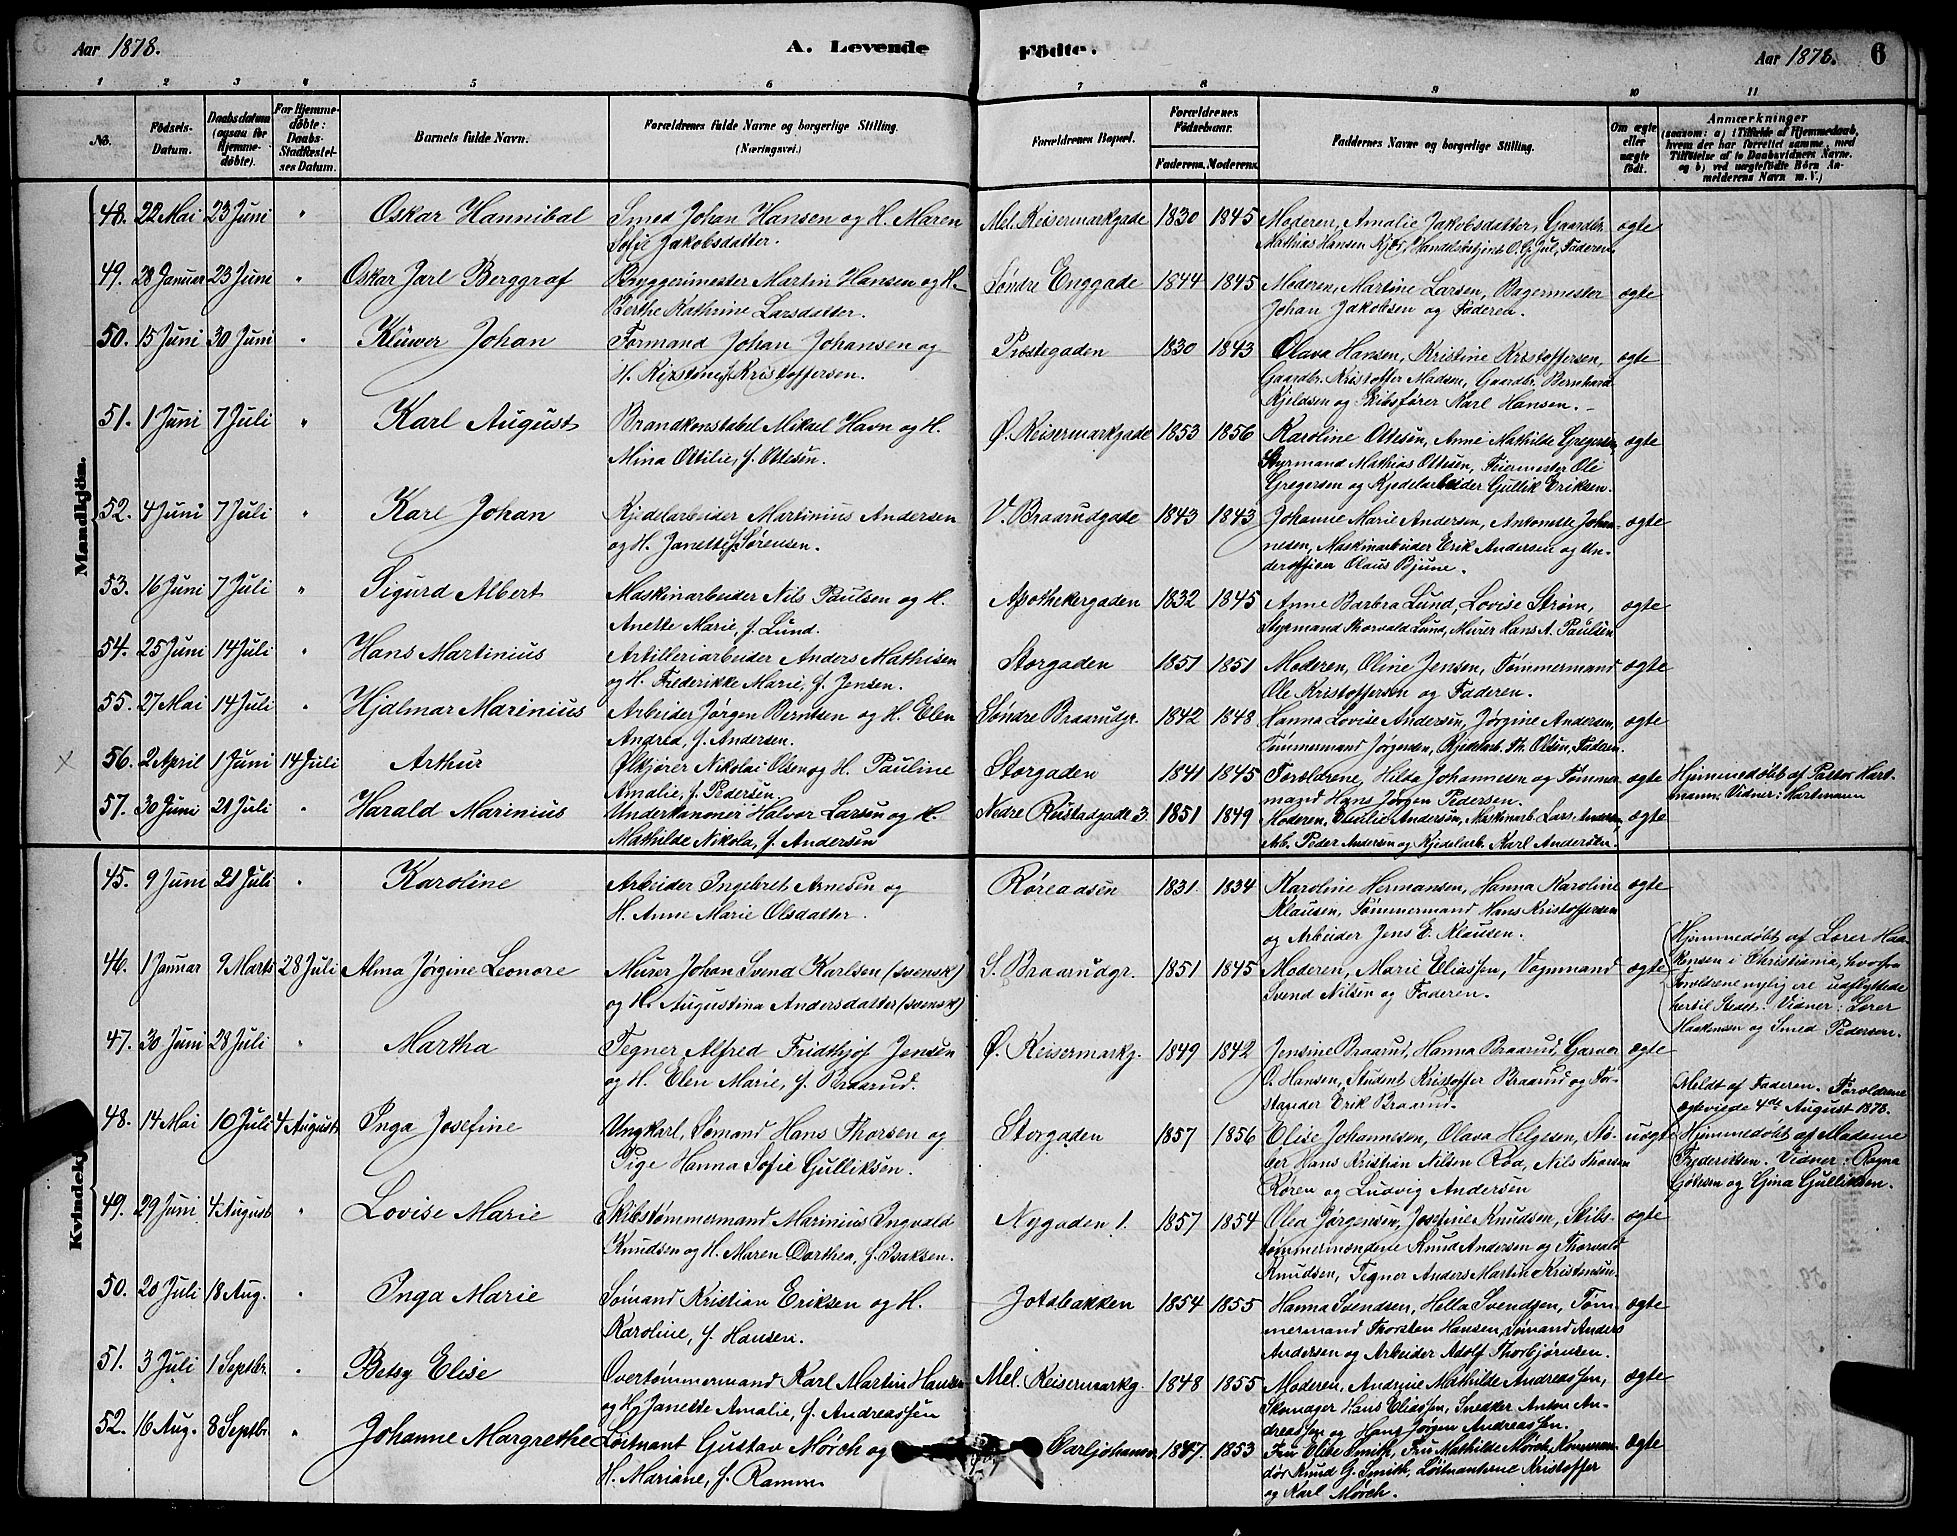 Aar 1878.
A. Levende Födte.
Aar 1878. 6
1 2 3 4 5 6 7 8 9 10 11
No.
Födsels-Datum.
Daabsdatum (ogsaa for Hjemme-döbte).
For Hjemme-döbte: Daabs-Stadfæstelses Datum.
Barnets fulde Navn.
Forældrenes fulde Navne og borgerlige Stilling. (Næringsvei.)
Forældrenes Bopæl.
Forældrenes Födselsaar. Faderens. Moderens.
Faddernes Navne og borgerlige Stilling.
Om ægte eller uægte födt.
Anmærkninger (saasom: a) i Tilfælde af Hjemmedaab, hvem der har forrettet samme, med Tilföielse af to Daabsvidners Navne. og b) ved uægtefödte Börn Anmelderens Navn m. V.)
Mandkjön.
48. 22 Mai 23 Juni " Oskar Hannibal Smed Johan Hansen og H. Maren Mel. Keisermarkgade 1830 1845 Moderen, Amalie Jakobsdatter, Gaardbr. ægte
Sofie Jakobsdatter. Mathias Hansen Kjær, Handelsbetjent O. G. Jul, Faderen
49. 28 Januar 23 Juni " Oskar Jarl Berggraf Bryggerimester Martin Hansen og H. Søndre Enggade 1844 1845 Moderen, Martine Larsen, Bagermester ægte
Berthe Kathrine Larsdatter. Johan Jakobsen og Faderen.
50. 15 Juni 30 Juni " Klüwer Johan Formand Johan Johansen og Præstegaden 1830 1843 Olava Hansen, Kristine Kristoffersen, ægte
H. Kirstine f. Kristoffersen. Gaardbr. Kristoffer Madsen, Gaardbr. Bernhard
Kjeldsen og Skibsfører Karl Hansen.
51. 1 Juni 7 Juli " Karl August Brandkonstabel Mikael Havn og H. Ø. Keisermarkgade 1853 1856 Karoline Ottesen, Anne Mathilde Gregersen, ægte
Mina Ottilie, f. Ottesen. Styrmand Mathias Ottesen, Feiermester Ole
Gregersen og Kjedelarbeider Gullik Eriksen.
52. 4 Juni 7 Juli " Karl Johan Kjedelarbeider Martinius Andersen V. Braarudgade 1843 1843 Johanne Marie Andersen, Antonette Johan- ægte
og H. Janette f. Sørensen. nesen, Maskinarbeider Erik Andersen og Un-
derofficer Olaus Bjune.
53. 16 Juni 7 Juli " Sigurd Albert Maskinarbeider Nils Paulsen og H. Apothekergaden 1832 1845 Anne Barbra Lund, Lovise Strøm, ægte
Anette Marie, f. Lund. Styrmand Thorvald Lund, Murer Hans A. Paulsen
54. 25 Juni 14 Juli " Hans Martinius Artilleriarbeider Anders Mathisen Storgaden 1851 1851 Moderen, Oline Jensen, Tømmermand ægte
og H. Frederikke Marie, f. Jensen. Ole Kristoffersen og Faderen.
55. 27 Mai 14 Juli " Hjalmar Marinius Arbeider Jørgen Berntsen og H. Elen Søndre Braarudgr. 1842 1848 Hanna Lovise Andersen, Jørgine Andersen, ægte
Andrea, f. Andersen. Tømmermand Jørgensen, Kjedelarb. Th. Olsen, Faderen.
56. 2 April 1 Juni 14 Juli Arthur Ølkjører Nikolai Olsen og H. Pauline Storgaden 1841 1845 Forældrene, Hilda Johannesen og Tømmer- ægte Hjemmedøbt af Pastor Hart-
Amalie, f. Pedersen. mand Hans Jørgen Pedersen. mann. Vidner: Hartmann
57. 30 Juni 21 Juli " Harald Marinius Underkanoner Halvor Larsen og H. Nedre Rustadgade 3. 1851 1849 Moderen, Emilie Andersen, Maskinarb. Lars Andersen, ægte
Mathilde Nikola, f. Andersen Arb. Peder Andersen og Kjedelarb. Karl Andersen.
Kvindekj
45. 9 Juni 21 Juli " Karoline Arbeider Ingebret Arnesen og Røreaasen 1831 1834 Karoline Hermansen, Hanna Karoline ægte
H. Anne Marie Olsdatter. Klausen, Tømmermand Hans Kristoffersen
og Arbeider Jens E. Klausen.
46. 1 Januar 9 Marts 28 Juli Alma Jørgine Leonore Murer Johan Svend Karlsen (svensk) S. Braarudgr. 1851 1845 Moderen, Marie Eliassen, Vognmand ægte Hjemmedøbt af Lærer Haa-
og H. Augustina Andersdatter (svensk) Svend Nilsen og Faderen. kensen i Christiania, hvorfra
Forældrene nylig ere udflyttede
hertil Stedet. Vidner: Lærer
Haakensen og Smed Pedersen.
47. 30 Juni 28 Juli " Martha Tegner Alfred Fridthjof Jensen Ø. Keisermarkg. 1849 1842 Jensine Braarud, Hanna Braarud, Garver ægte
og H. Elen Marie, f. Braarud. O. Hansen, Student Kristoffer Braarud og For-
stander Erik Braarud.
48. 14 Mai 10 Juli 4 August Inga Josefine Ungkarl, Sømand Hans Thorsen og Storgaden 1857 1856 Elise Johannesen, Olava Helgesen, Stø- uægte Meldt af Faderen. Forældrene
ægteviede 4de August 1878.
Pige Hanna Sofie Gulliksen. ber Hans Kristian Nilsen Rød, Nils Thorsen Hjemmedøbt af Madame
Røren og Ludvig Andersen Frederiksen. Vidner: Ragna
og Gina Gulliksen.
49. 29 Juni 4 August " Lovise Marie Skibstømmermand Marinius Ingvald Nygaden 1. 1857 1854 Olea Jørgensen, Josefine Knudsen, Skibs- ægte
Knudsen og H. Maren Dorthea, f. Isaksen. tømmermændene Knud Andersen og Thorvald
Knudsen, Tegner Anders Martin Kristensen.
50. 20 Juli 18 Aug. " Inga Marie Sømand Kristian Eriksen og H. Jotabakken 1854 1855 Hanna Svendsen, Hella Svendsen, Tøm- ægte
Karoline, f. Hansen. mermand Thorsten Hansen, Sømand Anders
Andersen og Arbeider Adolf Thorbjørnsen.
51. 3 Juli 1 Septbr. " Betsy Elise Overtømmermand Karl Martin Hansen Mel. Keisermarkg. 1848 1855 Moderen, Andrine Mathilde Andreassen, ægte
og H. Janette Amalie, f. Andreassen Skomager Hans Eliassen, Snedker Anton An-
dreassen og Hans Jørgen Andreassen.
52. 16 Aug. 8 Septbr. " Johanne Margrethe Løitnant Gustav Mørch og Carljohansv. 1847. 1853 Fru Elise Smith, Fru Mathilde Mørch, Komman- ægte
H. Mariane, f. Ramm. dør Knud G. Smith, Løitnanterne Kristoffer
og Karl Mørch.